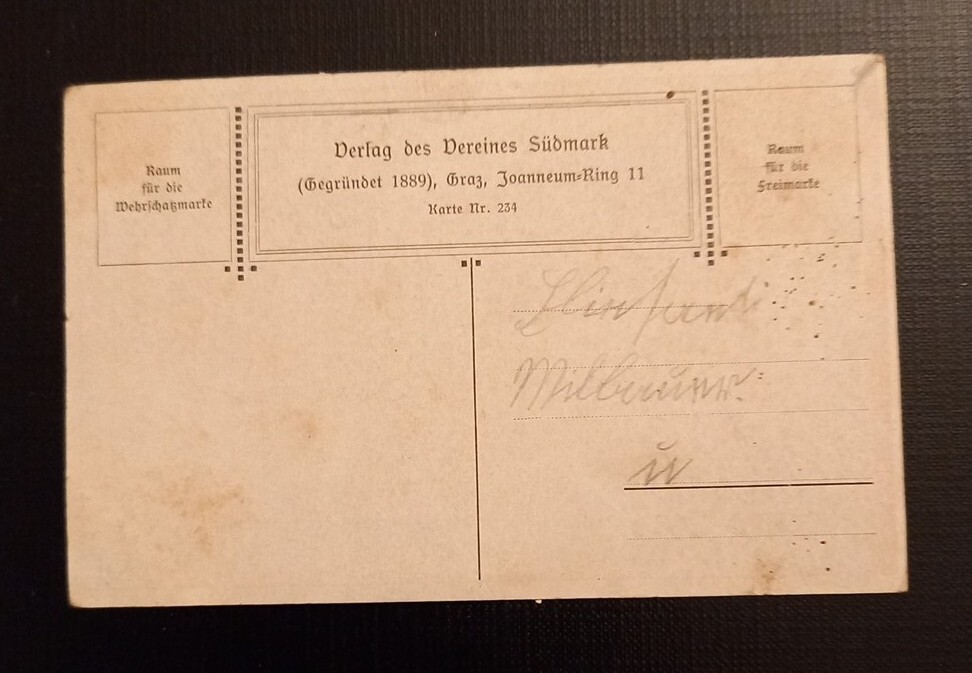 Raum
für die
Wehrschatzmarke
Verlag des Vereines Südmark
(Gegründet 1889), Graz, Joanneum-Ring 11
Karte Nr. 234
Raum
für die
Freimarke